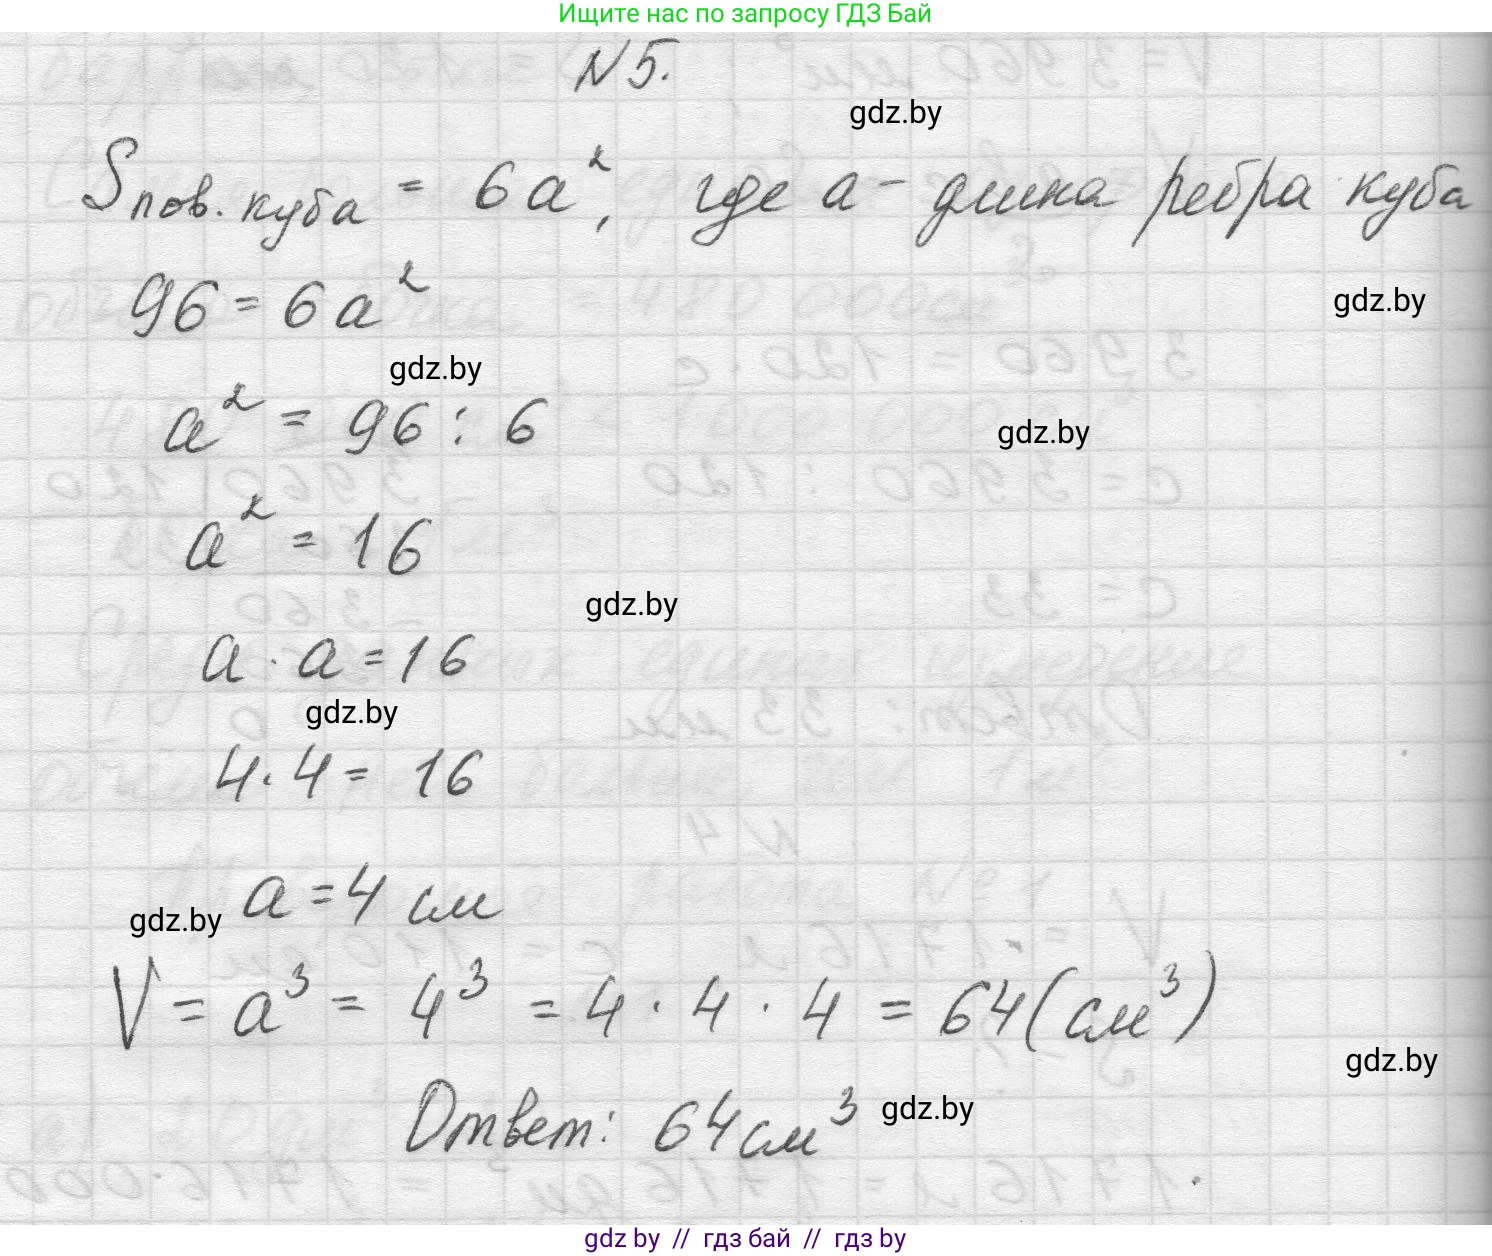 Ищите нас по запросу ГДЗ Бай
N5.
gdz.by
Sпов. куба = 6a², где a - длина ребра куба
96 = 6a²
gdz.by
gdz.by
a² = 96 : 6
gdz.by
a² = 16
gdz.by
a · a = 16
gdz.by
4 · 4 = 16
a = 4 см
gdz.by
V = a³ = 4³ = 4 · 4 · 4 = 64 (см³)
gdz.by
Ответ: 64 см³
gdz.by
gdz by // гдз бай // гдз by